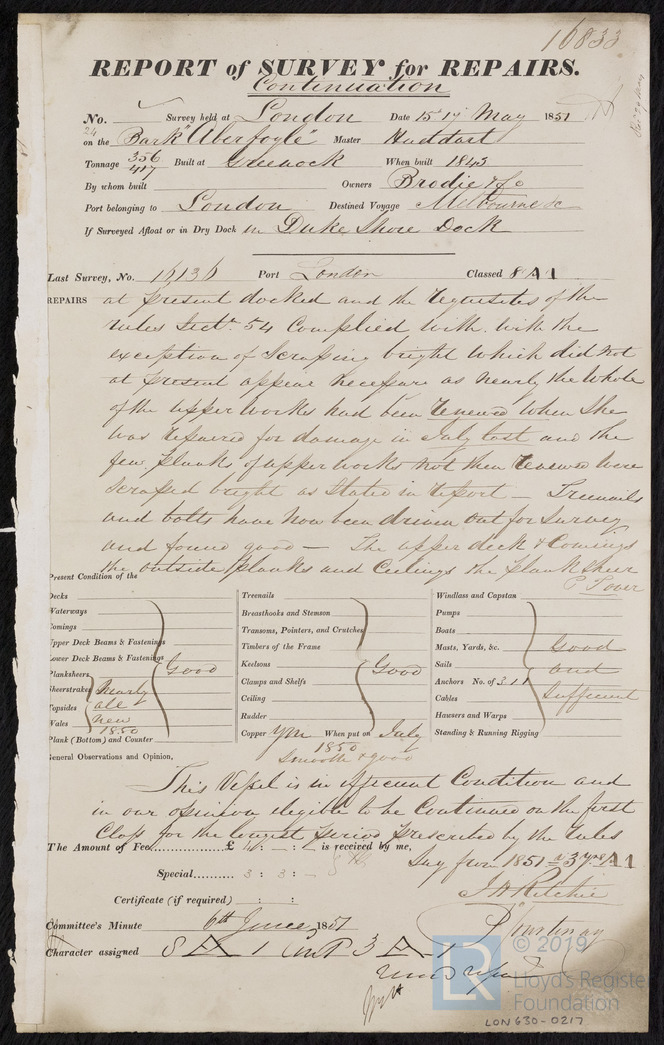 16833
REPORT of SURVEY for REPAIRS.
Continuation
No. Survey held at London Date 15 17 May 1851
24 on the Bark "Aberfoyle" Master Huddart
Tonnage 356 417 Built at Greenock When built 1845
By whom built Owners Brodie & Co
Port belonging to London Destined Voyage Melbourne &c
If Surveyed Afloat or in Dry Dock in Duke Shore Dock
Last Survey, No. 16136 Port London Classed 8 A 1
REPAIRS at present docked and the requisites of the
rules Sectn. 54 Complied with. with the
exception of Scraping bright which did not
at present appear necessary as nearly the whole
of the upper works had been renewed when she
was repaired for damage in July last and the
few planks of upper works not then renewed were
scraped bright as stated in report — Treenails
and bolts have now been driven out for Survey
and found good — The upper deck & Comings
the outside planks and Ceilings the plank sheer
P T over
Present Condition of the
Decks
Waterways
Comings
Upper Deck Beams & Fastenings
Lower Deck Beams & Fastenings
Planksheers
Sheerstrakes
Topsides
Wales
Plank (Bottom) and Counter
Good
nearly
all
new
1850
Treenails
Breasthooks and Stemson
Transoms, Pointers, and Crutches
Timbers of the Frame
Keelsons
Clamps and Shelfs
Ceiling
Rudder
Good
Copper YM When put on July
1850
Smooth & good
Windlass and Capstan
Pumps
Boats
Masts, Yards, &c.
Sails
Anchors No. of 3.1.1
Cables
Hausers and Warps
Standing & Running Rigging
Good
and
Sufficient
General Observations and Opinion,
This Vessel is in efficient Condition and
in our opinion eligible to be Continued on the first
Class for the longest period prescribed by the rules
Say from 1851 = 3 yrs A 1
The Amount of Fee............... £ : - : - is received by me,
Special.......... 3 : 3 : -
Certificate (if required) : :
J H Ritchie
P Courtenay
Committee's Minute 6th June 1851
Character assigned 8 A 1 Cont 3 A 1
© 2019
Lloyd's Register
Foundation
LR
LON630-0217